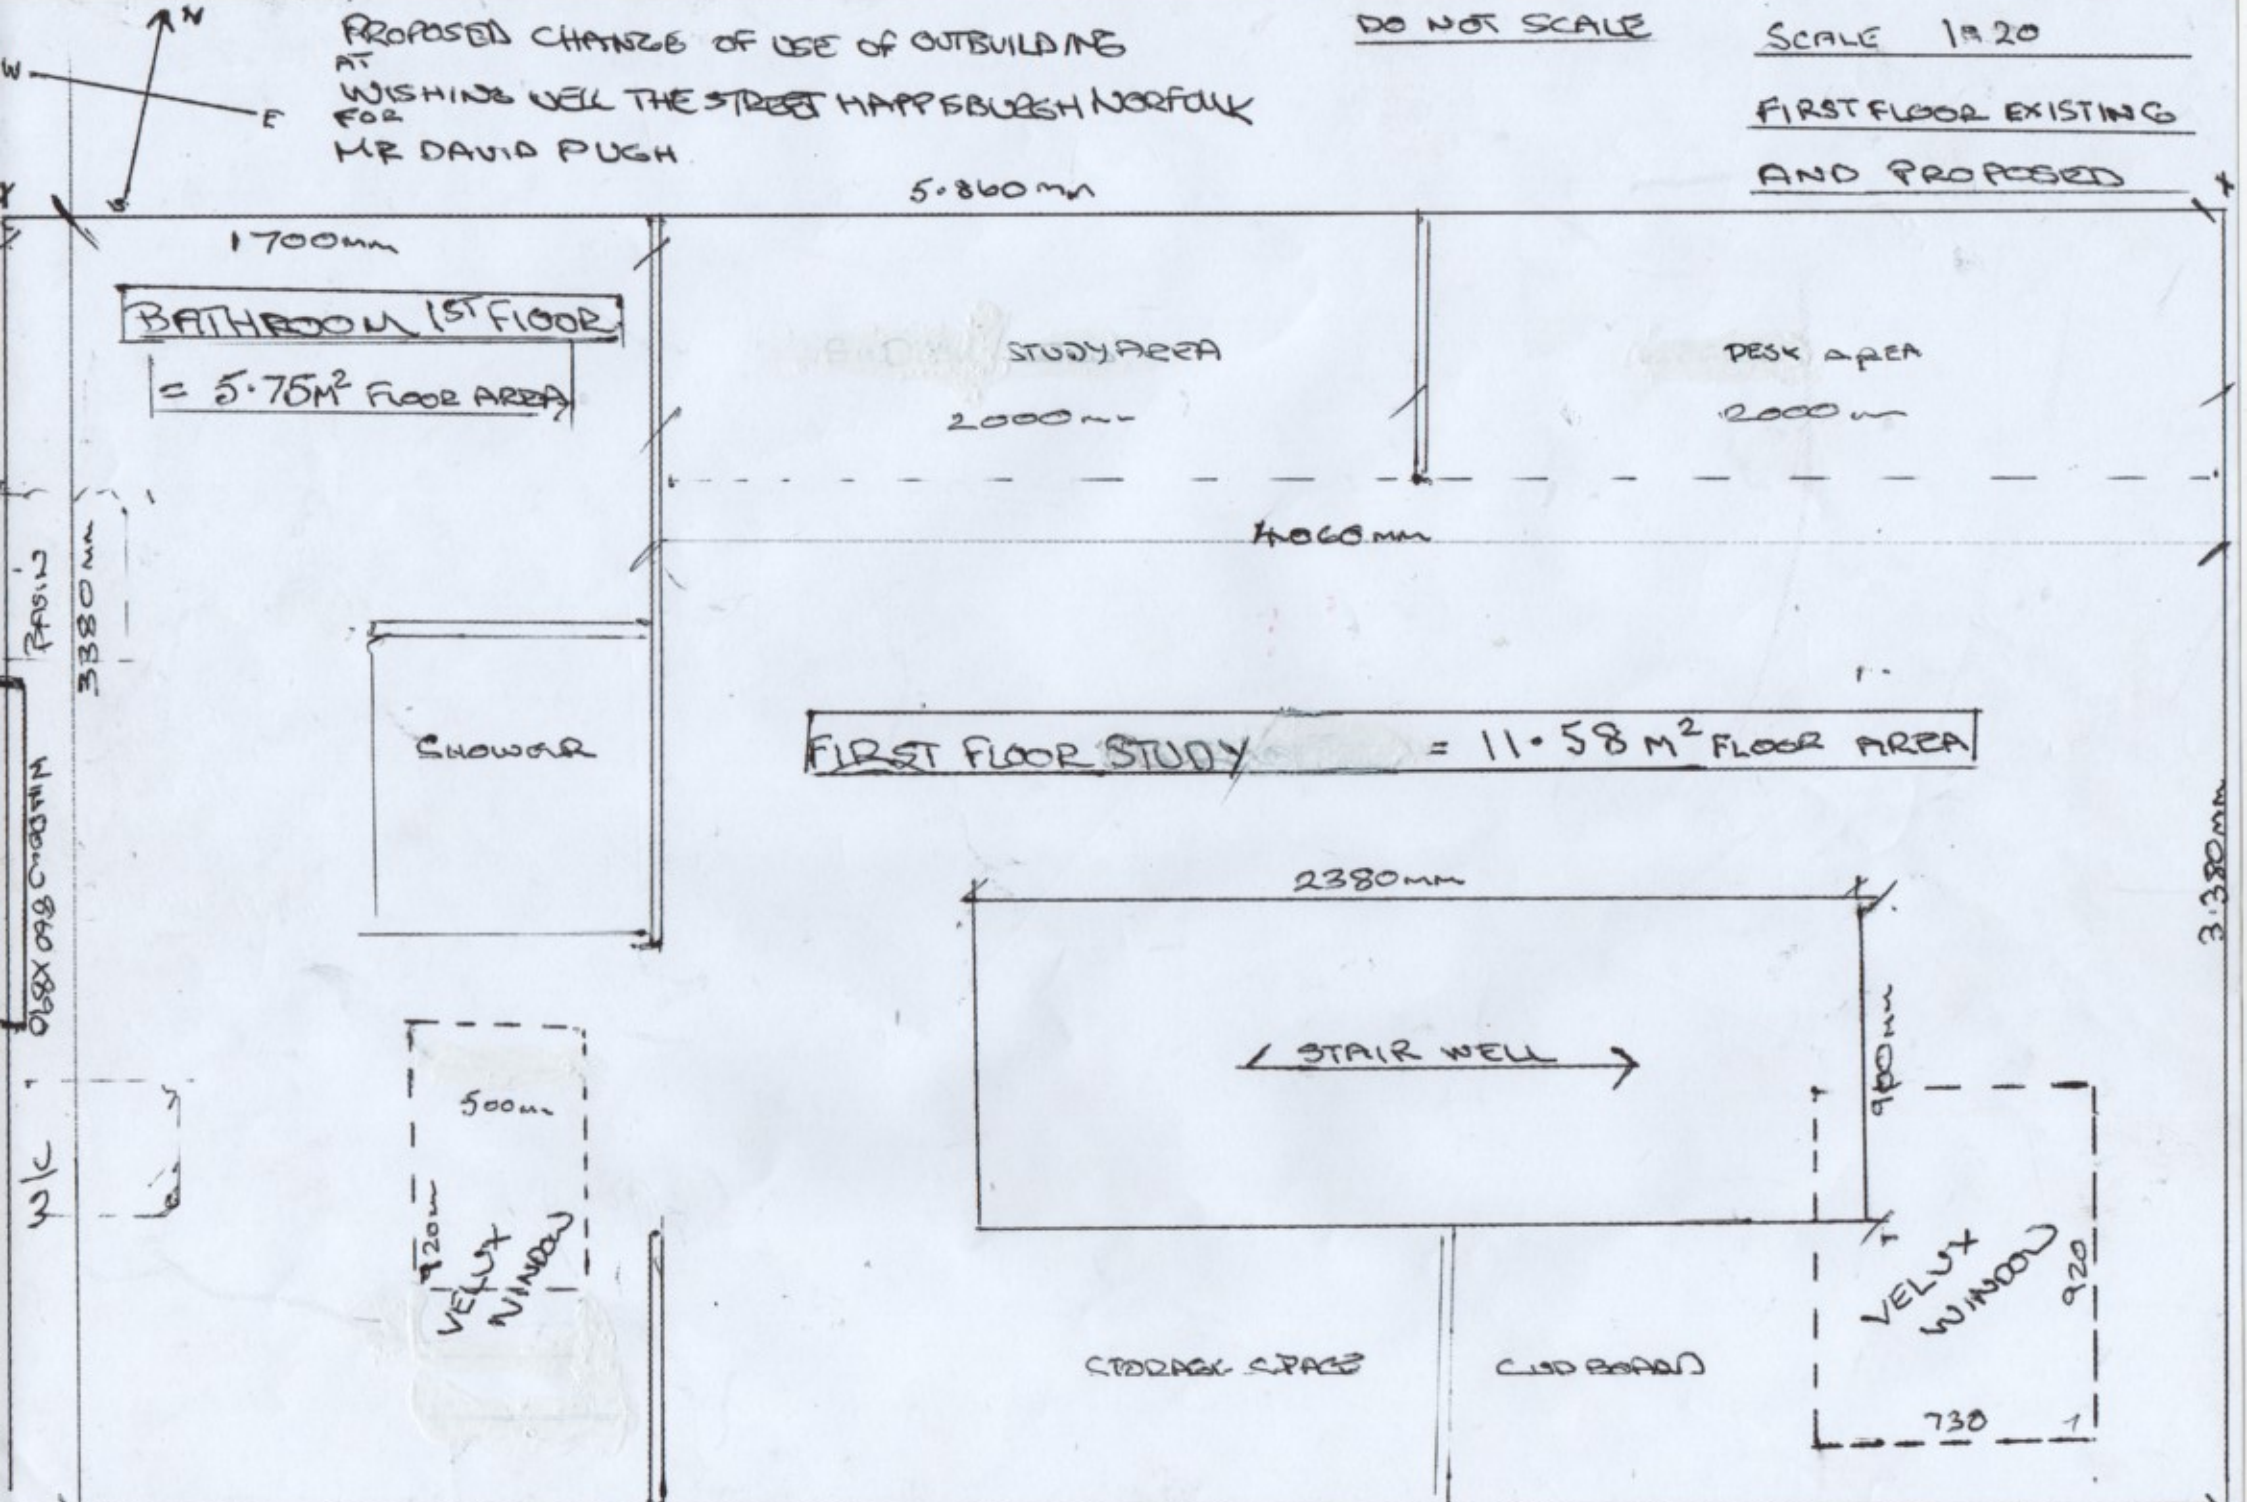 N
W
E
S
PROPOSED CHANGE OF USE OF OUTBUILDING
AT
WISHING WELL THE STREET HAPPISBURGH NORFOLK
FOR
MR DAVID PUGH
DO NOT SCALE
SCALE 1:20
FIRST FLOOR EXISTING
AND PROPOSED
5.860mm
1700mm
BATHROOM 1ST FLOOR
= 5.75M² FLOOR AREA
STUDY AREA
2000mm
DESK AREA
2000mm
4.060mm
BASIN
3380mm
SHOWER
FIRST FLOOR STUDY = 11.58 M² FLOOR AREA
3.380mm
2380mm
STAIR WELL
900mm
W/C
500mm
920mm
VELUX
WINDOW
VELUX
WINDOW
920
730
STORAGE SPACE
CUPBOARD